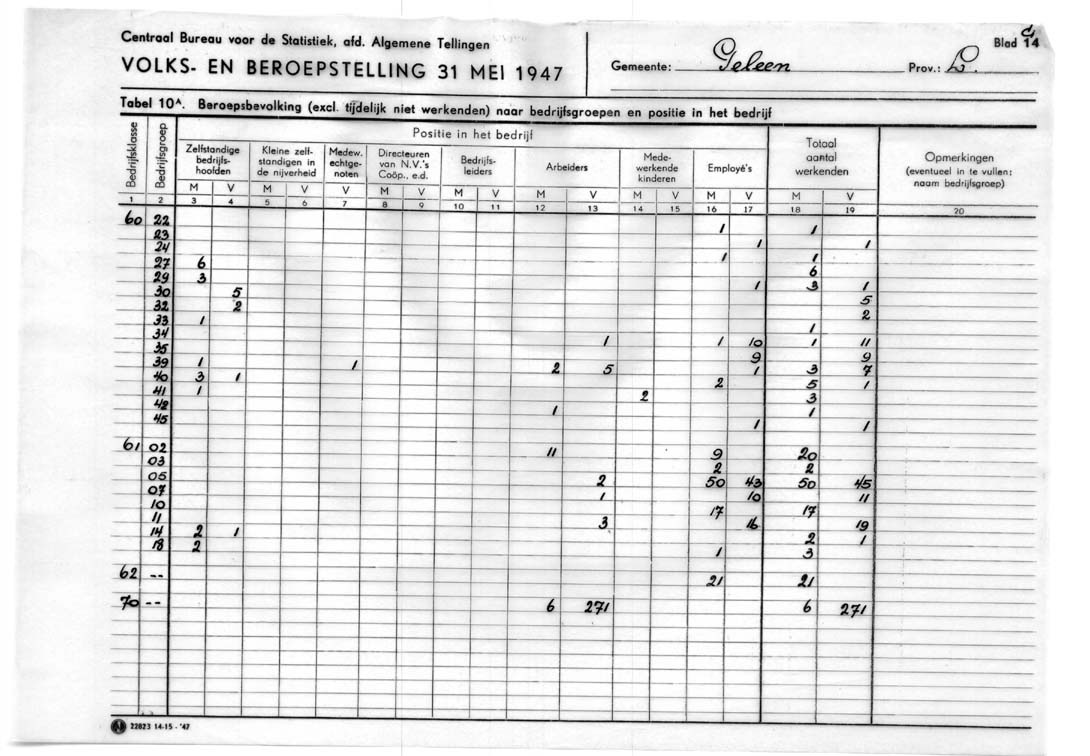 Centraal Bureau voor de Statistiek, afd. Algemene Tellingen
VOLKS- EN BEROEPSTELLING 31 MEI 1947
Gemeente: Geleen Prov.: L.
Blad 14
Tabel 10A. Beroepsbevolking (excl. tijdelijk niet werkenden) naar bedrijfsgroepen en positie in het bedrijf
Bedrijfsklasse
Bedrijfsgroep
Positie in het bedrijf
Zelfstandige bedrijfs-hoofden
Kleine zelf-standigen in de nijverheid
Medew. echtge-noten
Directeuren van N.V.'s Coöp., e.d.
Bedrijfs-leiders
Arbeiders
Mede-werkende kinderen
Employé's
Totaal aantal werkenden
Opmerkingen (eventueel in te vullen: naam bedrijfsgroep)
M V M V V M V M V M V M V M V M V
1 2 3 4 5 6 7 8 9 10 11 12 13 14 15 16 17 18 19 20
60 22 1 1
23 1 1
24 1 1
27 6 6
29 3 1 3 1
30 5 5
32 2 2
33 1 1
34 1 1 10 1 11
35 9 9
39 1 1 2 5 1 3 7
40 3 1 2 5 1
41 1 2 3
42 1 1
45 1 1
61 02 11 9 20
03 2 2
05 2 50 43 50 45
07 1 10 11
10 17 17
11 3 16 19
14 2 1 2 1
18 2 1 3
62 -- 21 21
70 -- 6 271 6 271
22823 14-15 - '47